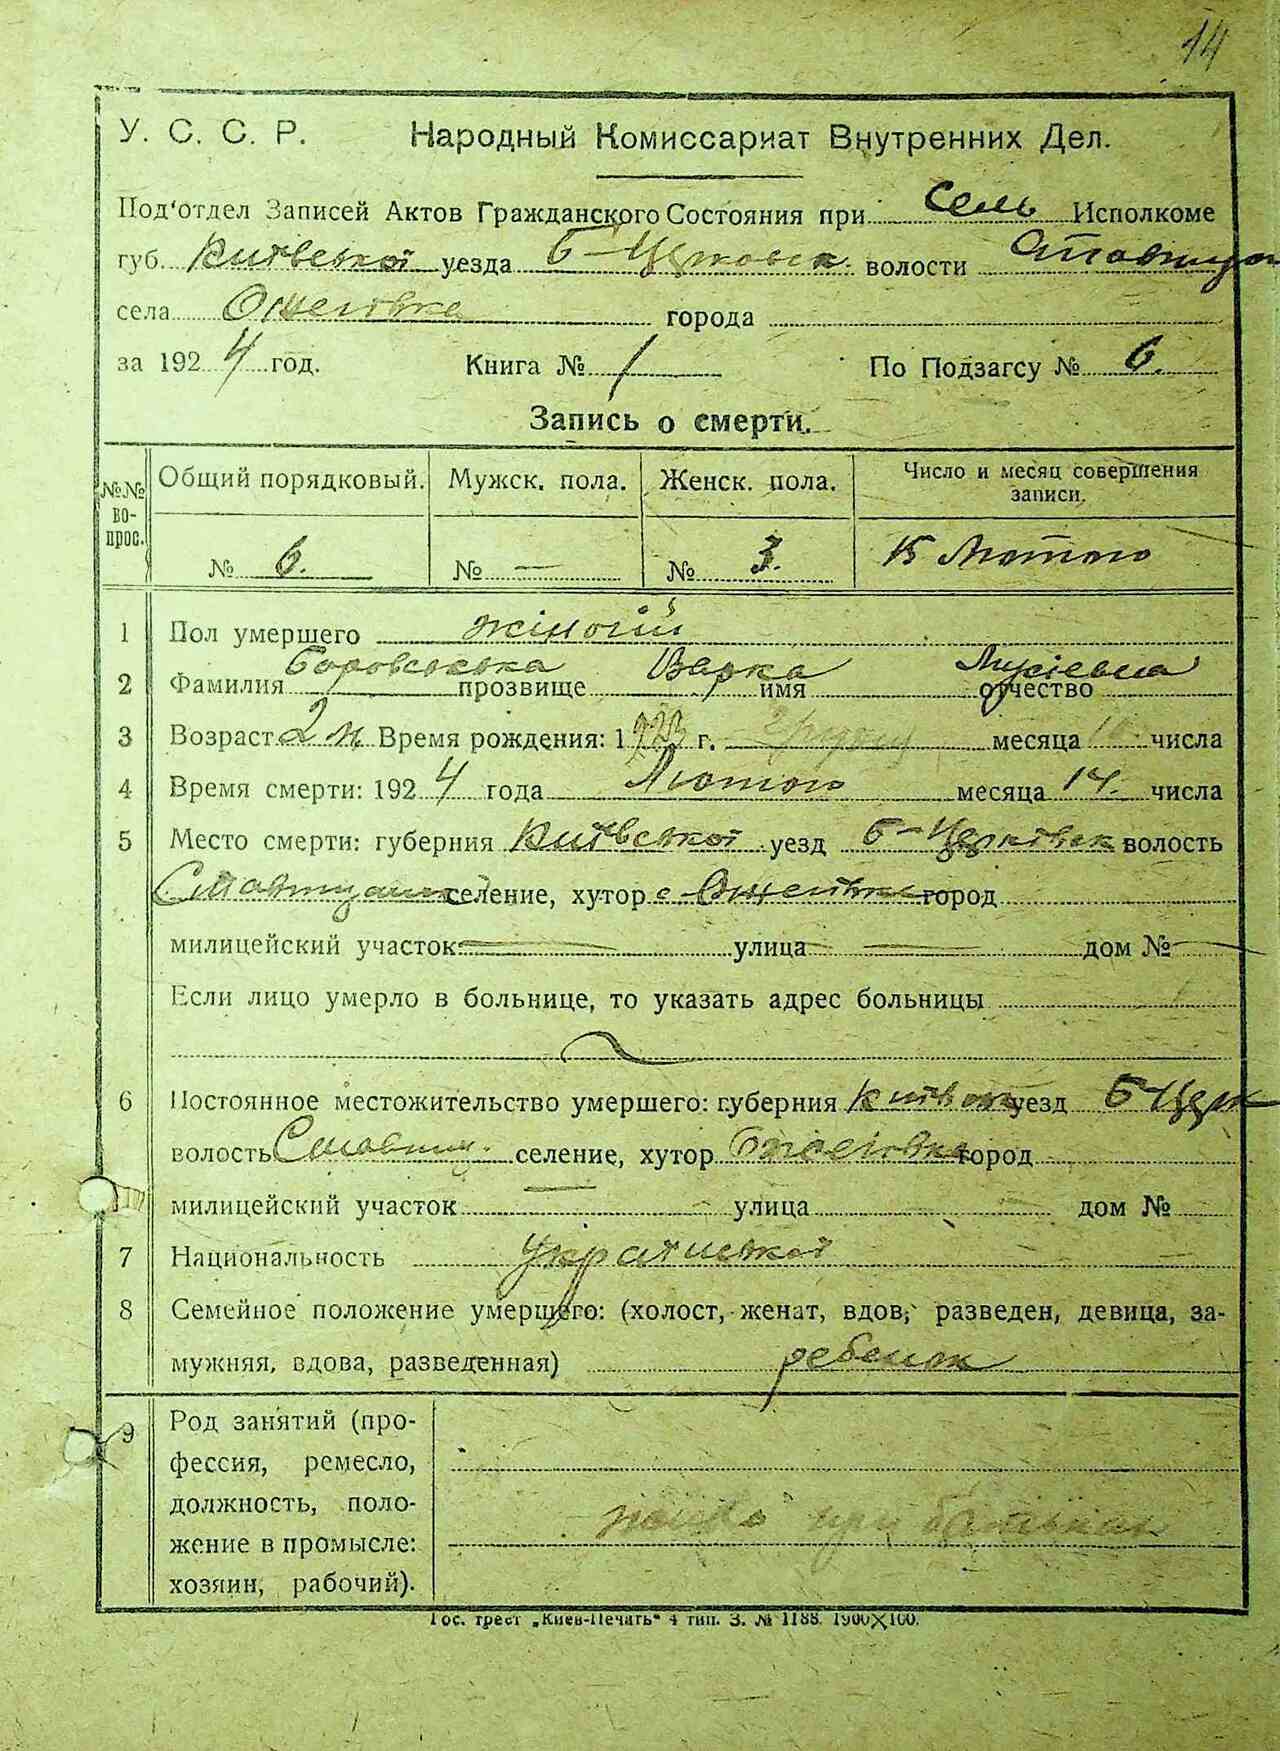 14
У. С. С. Р. Народный Комиссариат Внутренних Дел.
Под'отдел Записей Актов Гражданского Состояния при Сель Исполкоме
губ. Київської уезда Б-Церковск волости
села города
за 1924 год. Книга № 1 По Подзагсу № 6.
Запись о смерти.
№№ вопрос. Общий порядковый. Мужск. пола. Женск. пола. Число и месяц совершения записи.
№ 6. № — № 3. 15 Лютого
1 Пол умершего жіночій
2 Фамилия прозвище Варка имя отчество
3 Возраст 2 м Время рождения: 1923 г. месяца числа
4 Время смерти: 1924 года Лютого месяца 14. числа
5 Место смерти: губерния Київської уезд Б-Церківск волость
селение, хутор город
милицейский участок улица дом №
Если лицо умерло в больнице, то указать адрес больницы
6 Постоянное местожительство умершего: губерния уезд Б-Церк
волость селение, хутор город
милицейский участок улица дом №
7 Национальность Української
8 Семейное положение умершего: (холост, женат, вдов, разведен, девица, за-
мужняя, вдова, разведенная) ребенок
9 Род занятий (про-
фессия, ремесло,
должность, поло-
жение в промысле: при батьках
хозяин, рабочий).
Гос. трест „Киев-Печать“ 4 тип. З. № 1188. 1900×100.